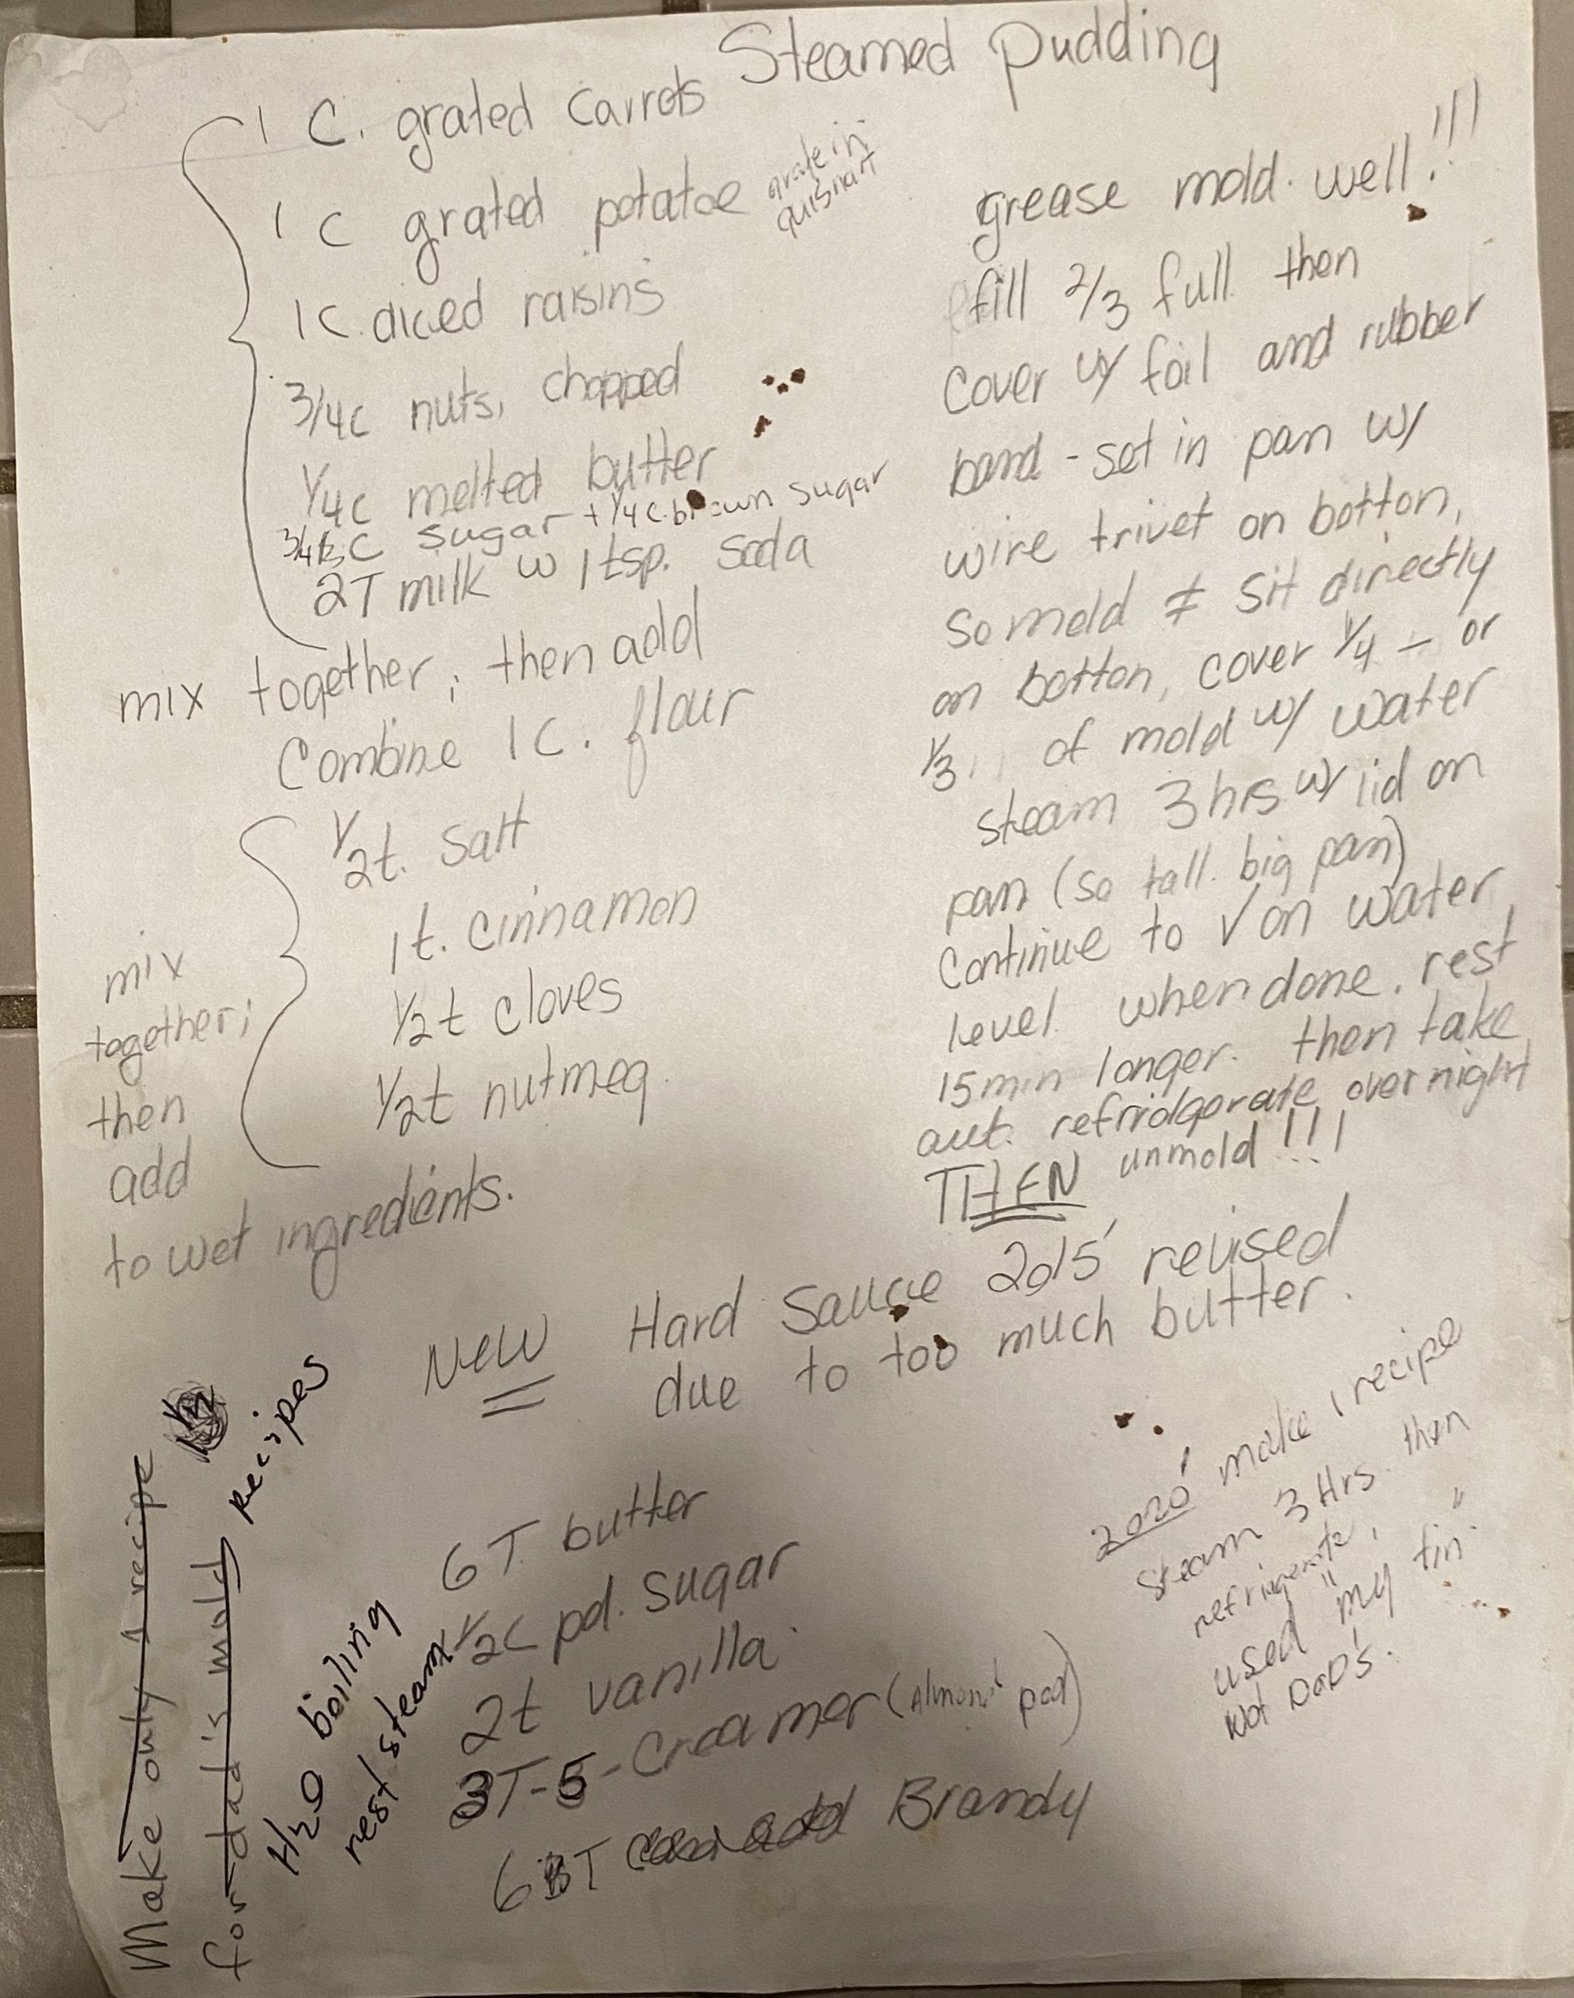 Steamed pudding
1 C. grated carrots
1 C grated potatoe
grate in
quisinart
1 C. diced raisins
3/4 c nuts, chopped
1/4 c melted butter
3/4 C sugar + 1/4 c. brown sugar
2T milk w 1 tsp. soda
mix together; then add
Combine 1 C. flour
1/2 t. salt
1 t. cinnamon
1/2 t cloves
1/2 t nutmeg
mix
together;
then
add
to wet ingredients.
grease mold. well!!!
fill 2/3 full then
cover w/ foil and rubber
band - set in pan w/
wire trivet on botton,
so mold ≠ sit directly
on botton, cover 1/4 - or
1/3 of mold w/ water
steam 3 hrs w/ lid on
pan (so tall. big pan)
continue to √ on water
level. when done. rest
15 min longer. then take
out. refridgerate overnight
THEN unmold!!!
NEW Hard Sauce 2015' revised
due to too much butter.
6 T. butter
1/2 C pd. sugar
2t vanilla
3T-5-Creamer (Almond pod)
6 T Brandy
2020' make 1 recipe
Steam 3 Hrs. then
refrigerate,
used "my tin"
Not DaD's.
Make only 1 recipe
for dad's mold
1 1/2
recipes
H2O boiling
rest steam